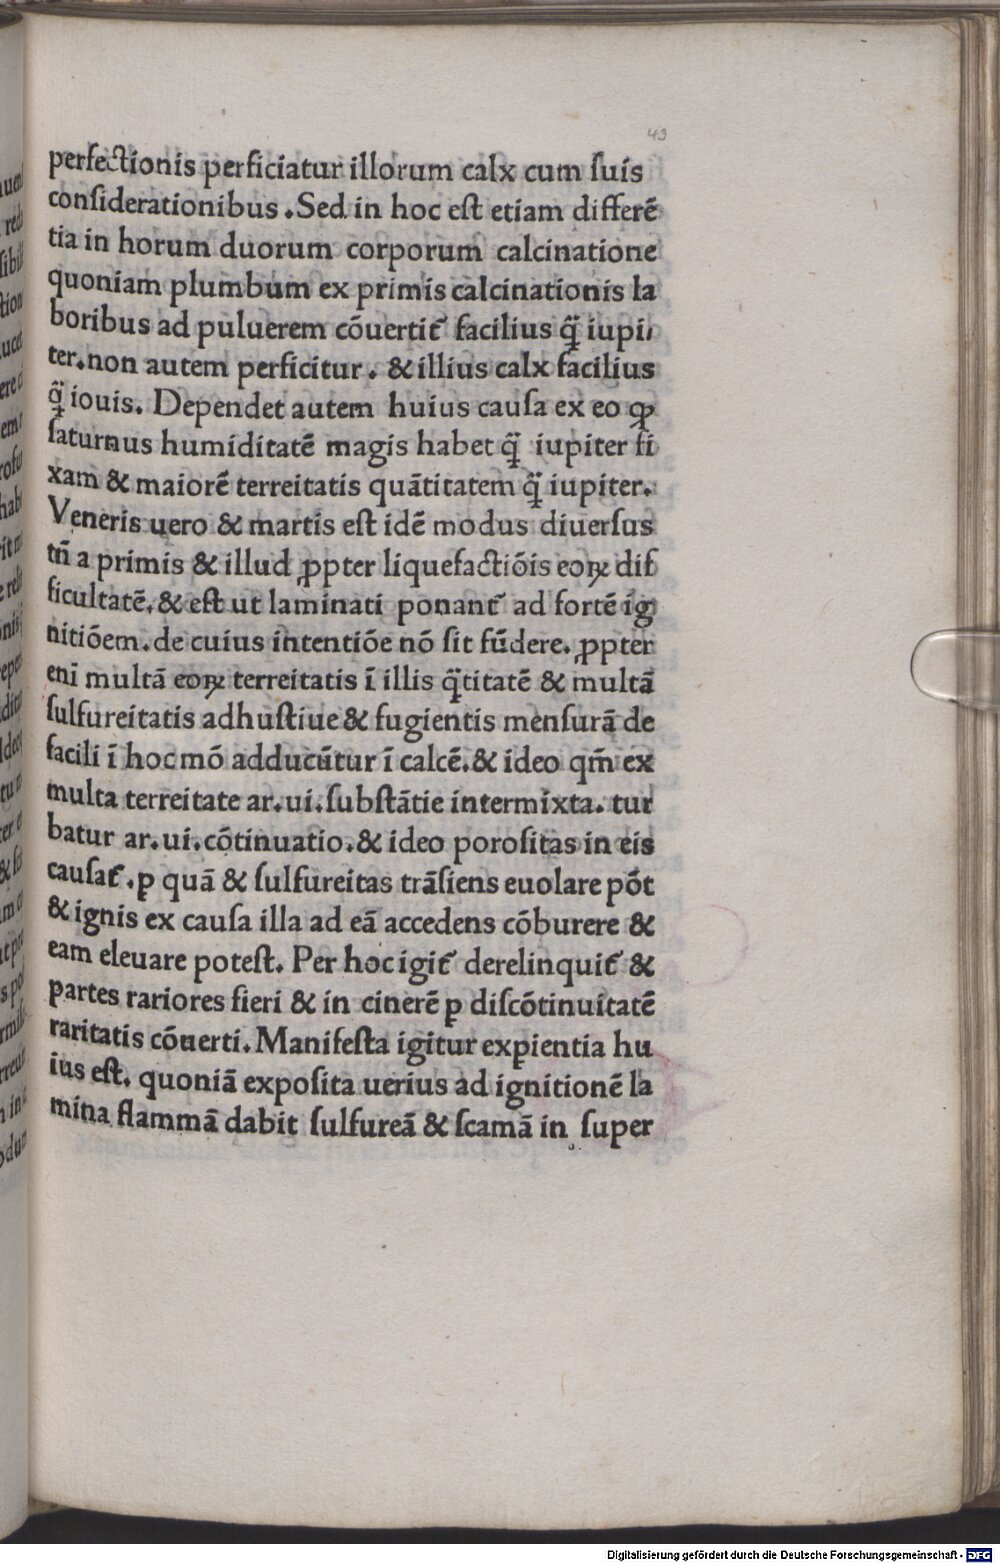 49
perfectionis perficiatur illorum calx cum ſuis
conſiderationibus. Sed in hoc eſt etiam differē
tia in horum duorum corporum calcinatione
quoniam plumbum ex primis calcinationis la
boribus ad puluerem cōuertit᷑ facilius q̄̈ iupi/
ter. non autem perficitur. & illius calx facilius
q̄̈ iouis. Dependet autem huius cauſa ex eo ꝙ
ſaturnus humiditatē magis habet q̄̈ iupiter fi
xam & maiorē terreitatis quātitatem q̄̈ iupiter.
Veneris uero & martis eſt idē modus diuerſus
tn̄ a primis & illud ꝓpter liquefactiōis eoꝝ dif
ficultatē. & eſt ut laminati ponant᷑ ad fortē ig
nitiōem. de cuius intentiōe nō ſit fūdere. ꝓpter
enī multā eoꝝ terreitatis ī illis q̄̈titatē & multā
ſulfureitatis adhuſtiue & fugientis menſurā de
facili ī hoc mō adducūtur ī calcē. & ideo qm̄ ex
multa terreitate ar. ui. ſubſtātie intermixta. tur
batur ar. ui. cōtinuatio. & ideo poroſitas in eis
cauſat᷑. ꝑ quā & ſulfureitas trāſiens euolare pōt
& ignis ex cauſa illa ad eā accedens cōburere &
eam eleuare poteſt. Per hoc igit᷑ derelinquit᷑ &
partes rariores fieri & in cinerē ꝑ diſcōtinuitatē
raritatis cōuerti. Manifeſta igitur exꝑientia hu
ius eſt. quoniā expoſita uerius ad ignitionē la
mina flammā dabit ſulfureā & ſcamā in ſuper
Digitalisierung gefördert durch die Deutsche Forschungsgemeinschaft - DFG